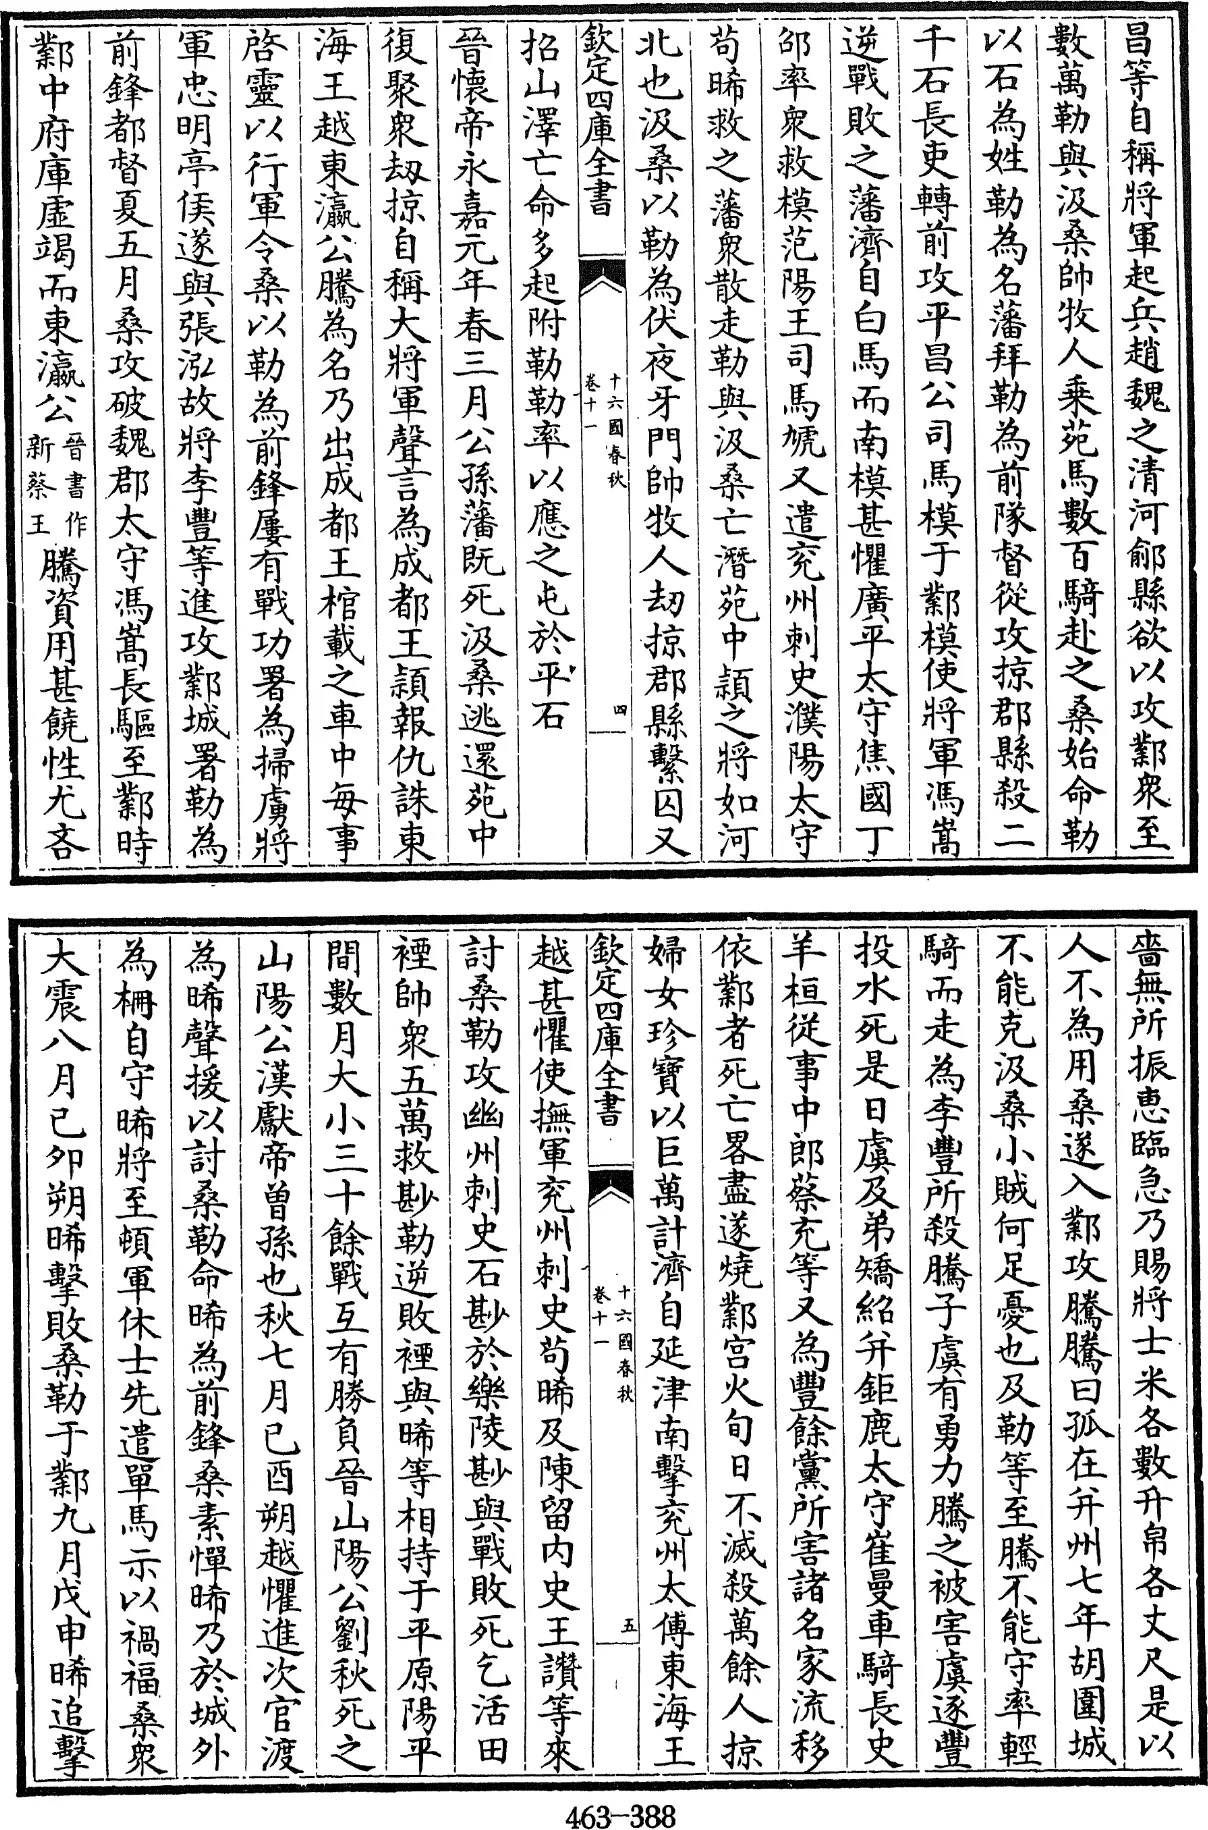 昌等自稱將軍起兵趙魏之清河鄃縣欲以攻鄴衆至
數萬勒與汲桑帥牧人乗苑馬數百騎赴之桑始命勒
以石為姓勒為名藩拜勒為前隊督從攻掠郡縣殺二
千石長吏轉前攻平昌公司馬模于鄴模使將軍馮嵩
逆戰敗之藩濟自白馬而南模甚懼廣平太守焦國丁
邵率衆救模范陽王司馬虓又遣兖州刺史濮陽太守
苟晞救之藩衆散走勒與汲桑亡潛苑中頴之將如河
北也汲桑以勒為伏夜牙門帥牧人刧掠郡縣繫囚又
欽定四庫全書
十六國春秋
卷十一
四
招山澤亡命多起附勒勒率以應之屯於平石
晉懷帝永嘉元年春三月公孫藩既死汲桑逃還苑中
復聚衆刼掠自稱大將軍聲言為成都王頴報仇誅東
海王越東瀛公騰為名乃出成都王棺載之車中每事
啓靈以行軍令桑以勒為前鋒屢有戰功署為掃虜將
軍忠明亭侯遂與張泓故將李豐等進攻鄴城署勒為
前鋒都督夏五月桑攻破魏郡太守馮嵩長驅至鄴時
鄴中府庫虛竭而東瀛公晉書作新蔡王騰資用甚饒性尤吝
嗇無所振恵臨急乃賜將士米各數升帛各丈尺是以
人不為用桑遂入鄴攻騰騰曰孤在并州七年胡圍城
不能克汲桑小賊何足憂也及勒等至騰不能守率輕
騎而走為李豐所殺騰子虞有勇力騰之被害虞逐豐
投水死是日虞及弟矯紹并鉅鹿太守崔曼車騎長史
羊桓從事中郎蔡充等又為豐餘黨所害諸名家流移
依鄴者死亡畧盡遂燒鄴宫火旬日不滅殺萬餘人掠
婦女珍寶以巨萬計濟自延津南擊兖州太傅東海王
欽定四庫全書
十六國春秋
卷十一
五
越甚懼使撫軍兖州刺史苟晞及陳留内史王讃等來
討桑勒攻幽州刺史石尠於樂陵尠與戰敗死乞活田
禋帥衆五萬救尠勒逆敗禋與晞等相持于平原陽平
間數月大小三十餘戰互有勝負晉山陽公劉秋死之
山陽公漢獻帝曾孫也秋七月己酉朔越懼進次官渡
為晞聲援以討桑勒命晞為前鋒桑素憚晞乃於城外
為柵自守晞將至頓軍休士先遣單馬示以禍福桑衆
大震八月己夘朔晞擊敗桑勒于鄴九月戊申晞追擊
463-388